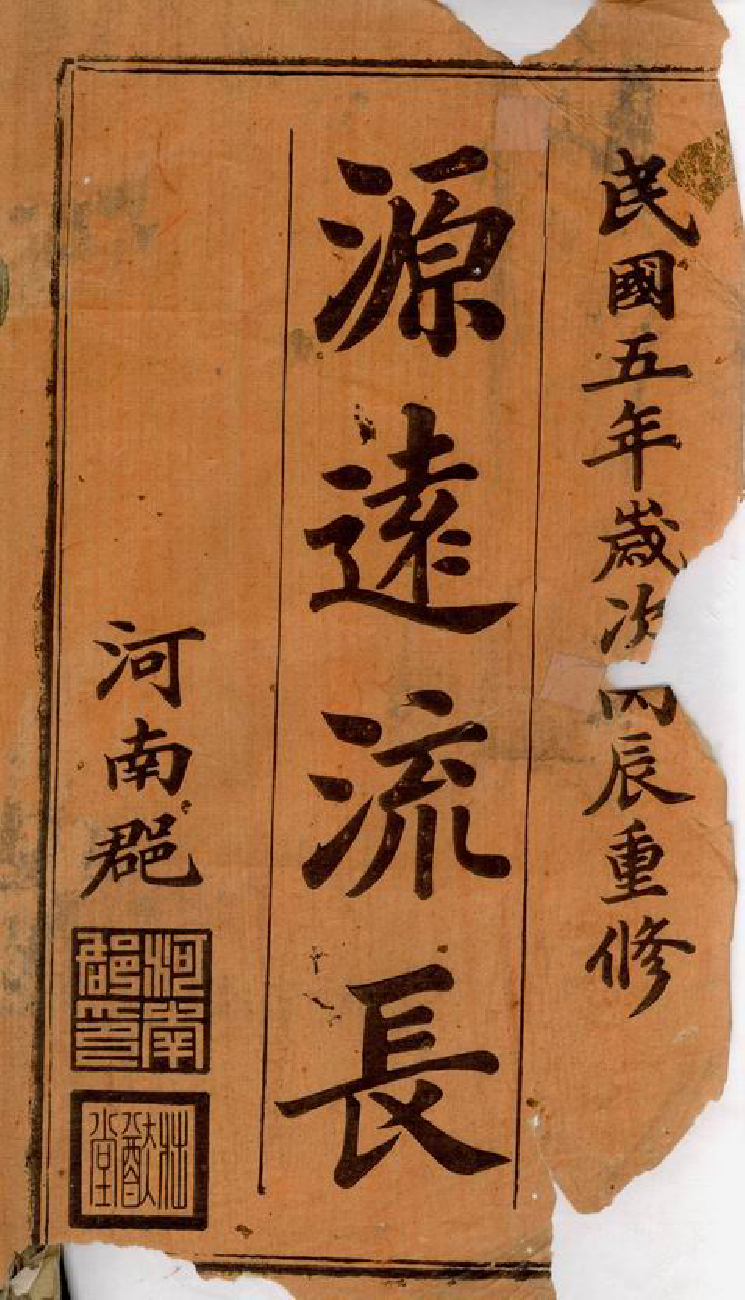 民國五年歲次丙辰重修
源遠流長
河南郡
河南郡印
壯猷堂